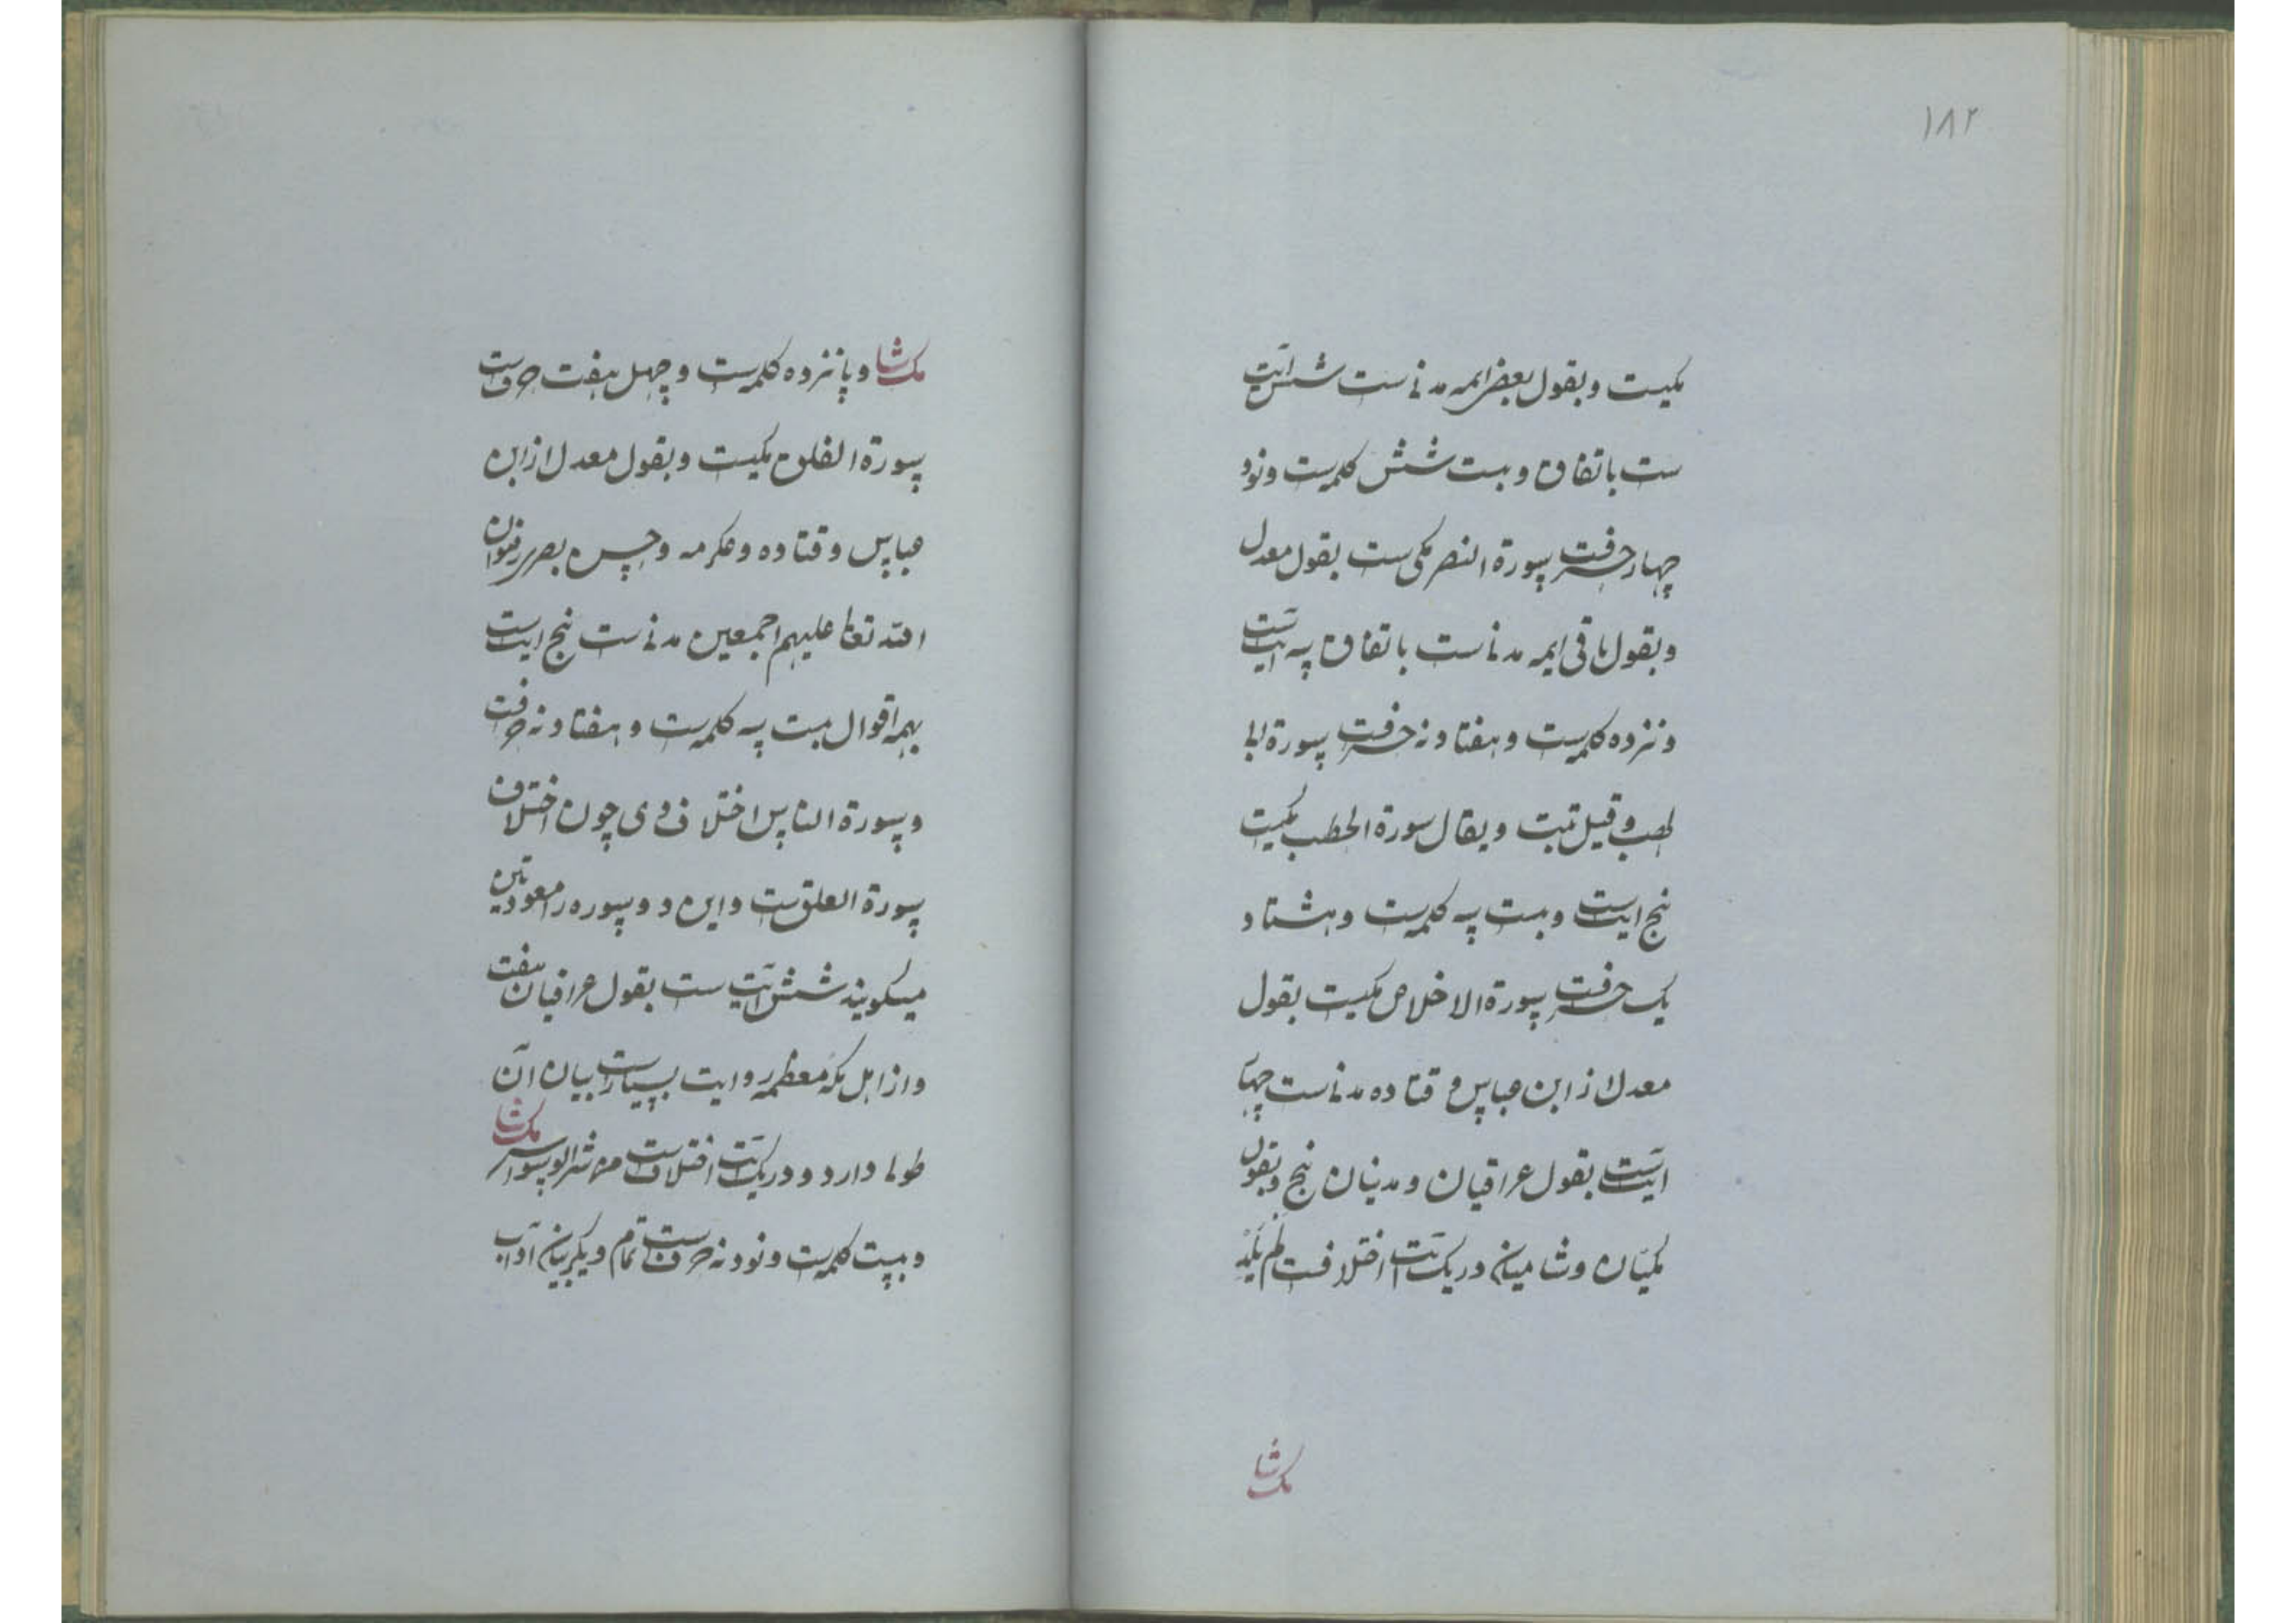 ۱۸۲
مکیست و بقول بعض ایمه مدنی است شش ایت
ست باتفاق و بست شش کلمه است و نود
چهار حرفست سورة النصر مکی ست بقول معدل
و بقول باقی ایمه مدنی است باتفاق سه ایت است
و نزده کلمه است و هفتاد نه حرفست سورة ابی
لهب و قیل تبت و یقال سورة الحطب مکیت
پنج ایت است و بست سه کلمه است و هشتاد
یک حرفست سورة الاخلاص مکیست بقول
معدل از ابن عباس و قتاده مدنی است چهار
ایت است بقول عراقیان و مدنیان پنج و بقول
مکیان و شامیان در یک ایت اختلافست لم یلد
مک شا
مک شا و پانزده کلمه است و چهل هفت حرف است
سورة الفلق مکیست و بقول معدل از ابن
عباس و قتاده و عکرمه و حسن بصری رضوان
الله تعالی علیهم اجمعین مدنی است پنج ایت است
بهمه اقوال بست سه کلمه است و هفتاد نه حرفت
و سورة الناس اختلاف وی چون اختلاف
سورة العلق ست و این دو سوره را معوذتین
میکویند شش ایت ست بقول عراقیان هفت
و از اهل مکه معظمه روایت بسیار است بیان آن
طولی دارد و در یک ایت اختلاف است من شر الوسواس
مک شا
و بیست کلمه است و نود نه حرف است تمام و یکر بیان آداب